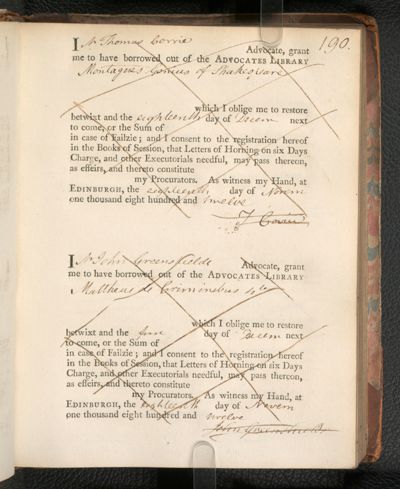 190.
I Mr Thomas Corrie Advocate, grant
me to have borrowed out of the ADVOCATES LIBRARY
Montague's Genius of Shakespeare
which I oblige me to restore
betwixt and the eighteenth day of Decem next
to come, or the Sum of
in case of Failzie; and I consent to the registration hereof
in the Books of Session, that Letters of Horning on six Days
Charge, and other Executorials needful, may pass thereon,
as effeirs, and thereto constitute
my Procurators. As witness my Hand, at
EDINBURGH, the eighteenth day of Novem
one thousand eight hundred and twelve
T Corrie
I Mr John Greenshields Advocate, grant
me to have borrowed out of the ADVOCATES LIBRARY
Matthaeus de Criminibus 4to
which I oblige me to restore
betwixt and the day of Decem next
to come, or the Sum of
in case of Failzie; and I consent to the registration hereof
in the Books of Session, that Letters of Horning on six Days
Charge, and other Executorials needful, may pass thereon,
as effeirs, and thereto constitute
my Procurators. As witness my Hand, at
EDINBURGH, the eighteenth day of Novem
one thousand eight hundred and twelve
John Greenshields